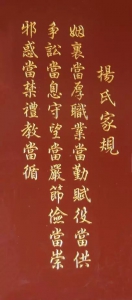 楊氏家規
姻襄當厚職業當勤賦役當供
爭訟當息守望當嚴節儉當崇
邪惑當禁禮教當循